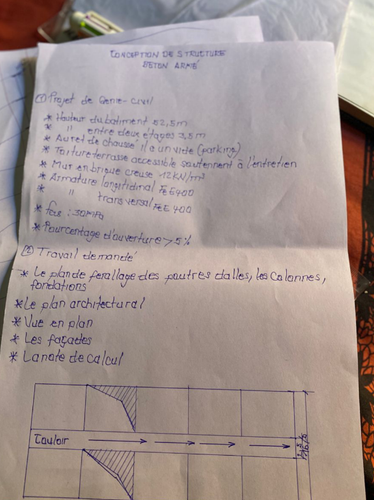 CONCEPTION DE STRUCTURE
BETON ARMÉ
① Projet de Genie-Civil
* Hauteur du batiment 22,5m
* " entre deux étages 3,5m
* Au ret de chaussé il a un vide (parking)
* Toiture terrasse accessible seulement à l'entretien
* Mur en brique creuse 12KN/m³
* Armature longitidinal FeE400
* " transversal FeE400
* fc28 : 30MPa
* Pourcentage d'ouverture > 5%
② Travail demandé
* Le plan de ferallage des poutres dalles, les colonnes,
fondations
* Le plan architectural
* Vue en plan
* Les façades
* La note de calcul
Couloir